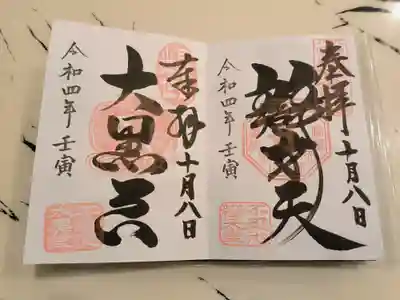 奉拝
十月八日
辯才天
令和四年 壬寅
奉拝
十月八日
大黒天
令和四年 壬寅